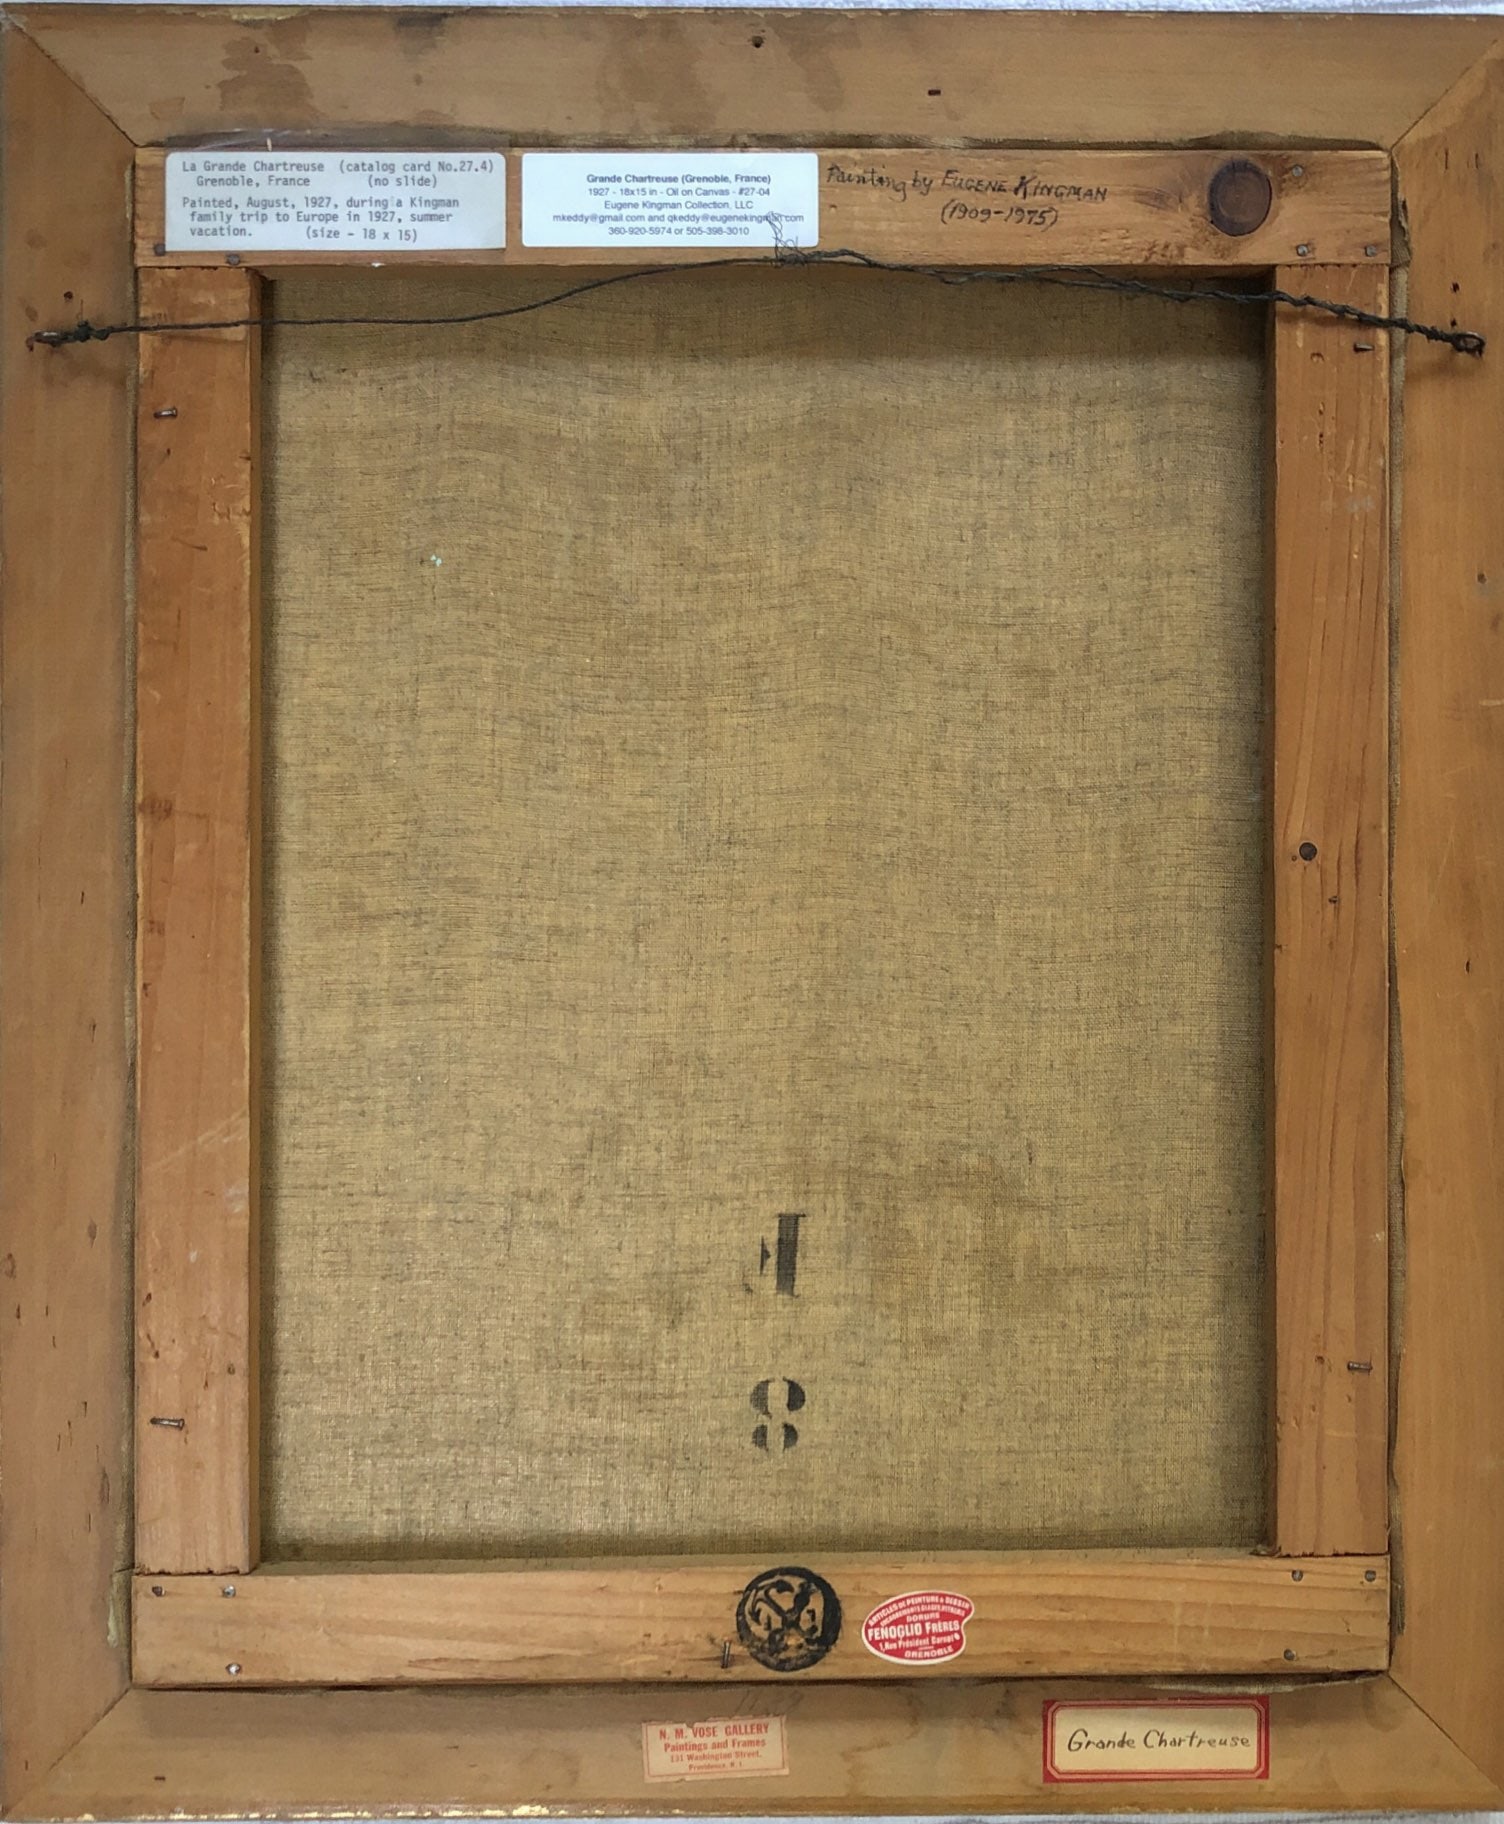 La Grande Chartreuse (catalog card No.27.4)
Grenoble, France (no slide)
Painted, August, 1927, during a Kingman
family trip to Europe in 1927, summer
vacation. (size - 18 x 15)
Grande Chartreuse (Grenoble, France)
1927 - 18x15 in - Oil on Canvas - #27-04
Eugene Kingman Collection, LLC
mkeddy@gmail.com and qkeddy@eugenekingman.com
360-920-5974 or 505-398-3010
Painting by EUGENE KINGMAN
(1909-1975)
8
ARTICLES DE PEINTURE & DESSIN
DORURE
FENOGLIO FRÈRES
1, Rue Président Carnot
GRENOBLE
N. M. VOSE GALLERY
Paintings and Frames
131 Washington Street,
Providence, R. I.
Grande Chartreuse